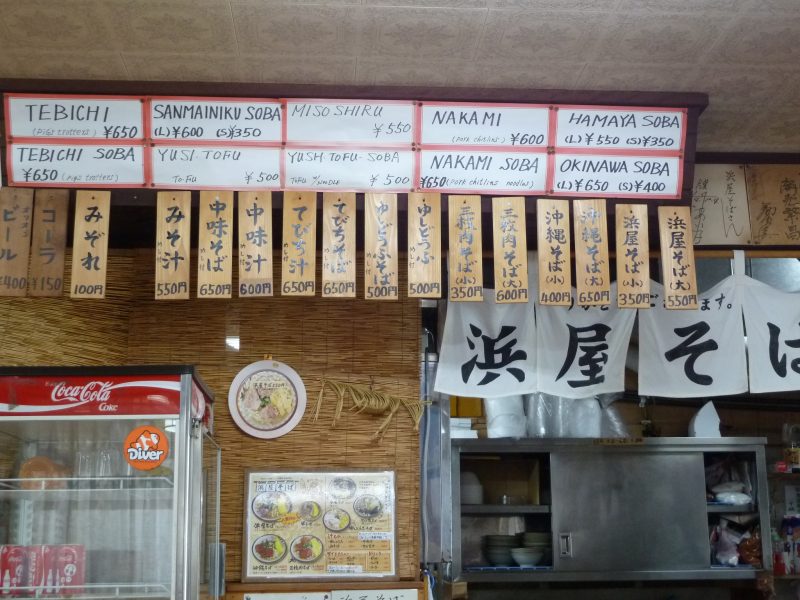 TEBICHI
(pigs trotters) ¥650
SANMAINIKU SOBA
(L) ¥600 (S) ¥350
MISO SHIRU
¥550
NAKAMI
(pork chitlins) ¥600
HAMAYA SOBA
(L) ¥550 (S) ¥350
TEBICHI SOBA
¥650 (pigs trotters)
YUSI-TOFU
TOFU ¥500
YUSH-TOFU-SOBA
TOFU W/NOODLE ¥500
NAKAMI SOBA
¥650 (pork chitlins noodles)
OKINAWA SOBA
(L) ¥650 (S) ¥400
ビール
¥400
コーラ
¥150
みぞれ
100円
みそ汁
めし付
550円
中味そば
650円
中味汁
めし付
600円
てびち汁
めし付
650円
てびちそば
650円
ゆしどうふそば
500円
ゆしどうふ
500円
三枚肉そば
(小)
350円
三枚肉そば
(大)
600円
沖縄そば
(小)
400円
沖縄そば
(大)
650円
浜屋そば
(小)
350円
浜屋そば
(大)
550円
浜屋そば
Coca-Cola
Coke
Diver
浜屋そば